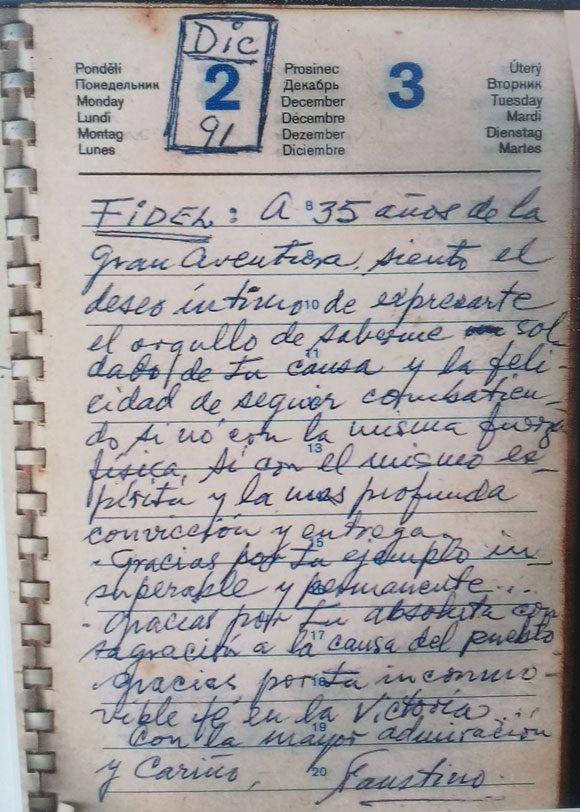 Dic
Pondělí
Понедельник
Monday
Lundi
Montag
Lunes
2
91
Prosinec
Декабрь
December
Décembre
Dezember
Diciembre
3
Úterý
Вторник
Tuesday
Mardi
Dienstag
Martes
FIDEL: A 8 35 años de la
gran aventura, siento el
deseo íntimo 10 de expresarte
el orgullo de saberme sol
11
dado de tu causa y la feli-
cidad de seguir combatien-
do si no con la misma fuerza
13
física, sí con el mismo es-
píritu y la mas profunda
convicción y entrega.
15
- Gracias por tu ejemplo in-
superable y permanente...
- Gracias por tu absoluta con
17
sagración a la causa del pueblo
- Gracias por tu inconmo-
vible fé en la Victoria...
19
Con la mayor admiración
y Cariño, 20 Faustino.